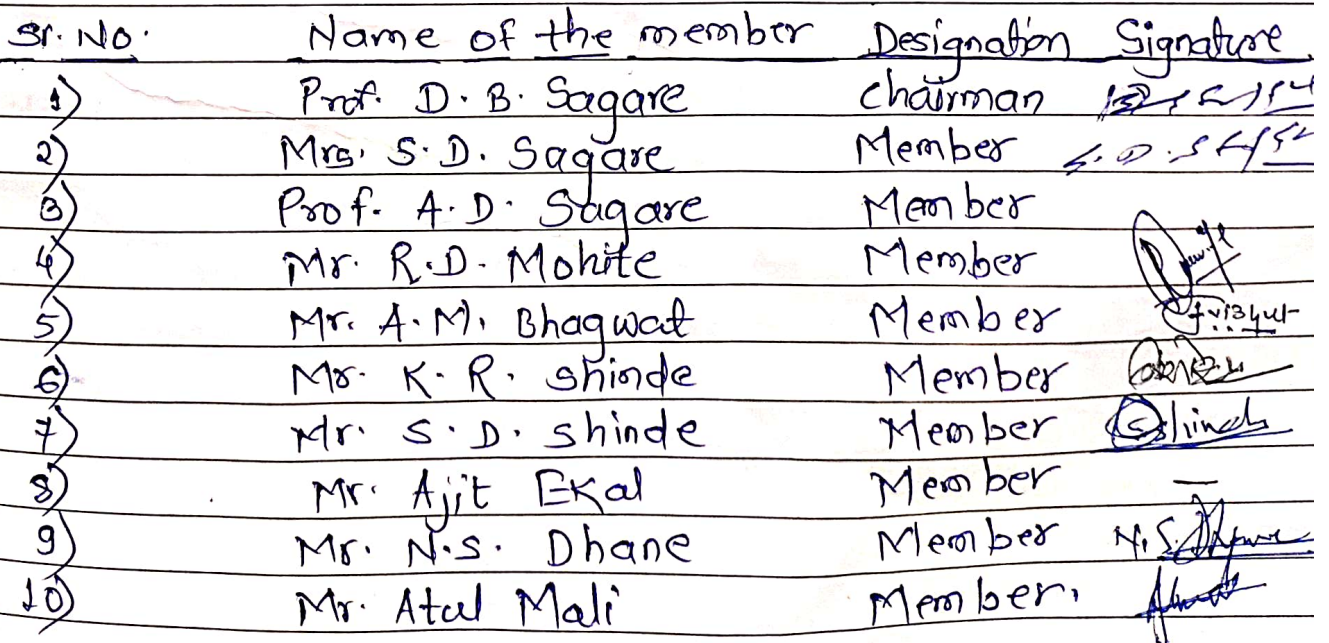 Sr. No. Name of the member Designation Signature
1) Prof. D. B. Sagare Chairman
2) Mrs. S. D. Sagare Member
3) Prof. A. D. Sagare Member
4) Mr. R. D. Mohite Member
5) Mr. A. M. Bhagwat Member
6) Mr. K. R. Shinde Member
7) Mr. S. D. Shinde Member SShinde
8) Mr. Ajit Ekal Member —
9) Mr. N. S. Dhane Member N. S. Dhane
10) Mr. Atul Mali Member.